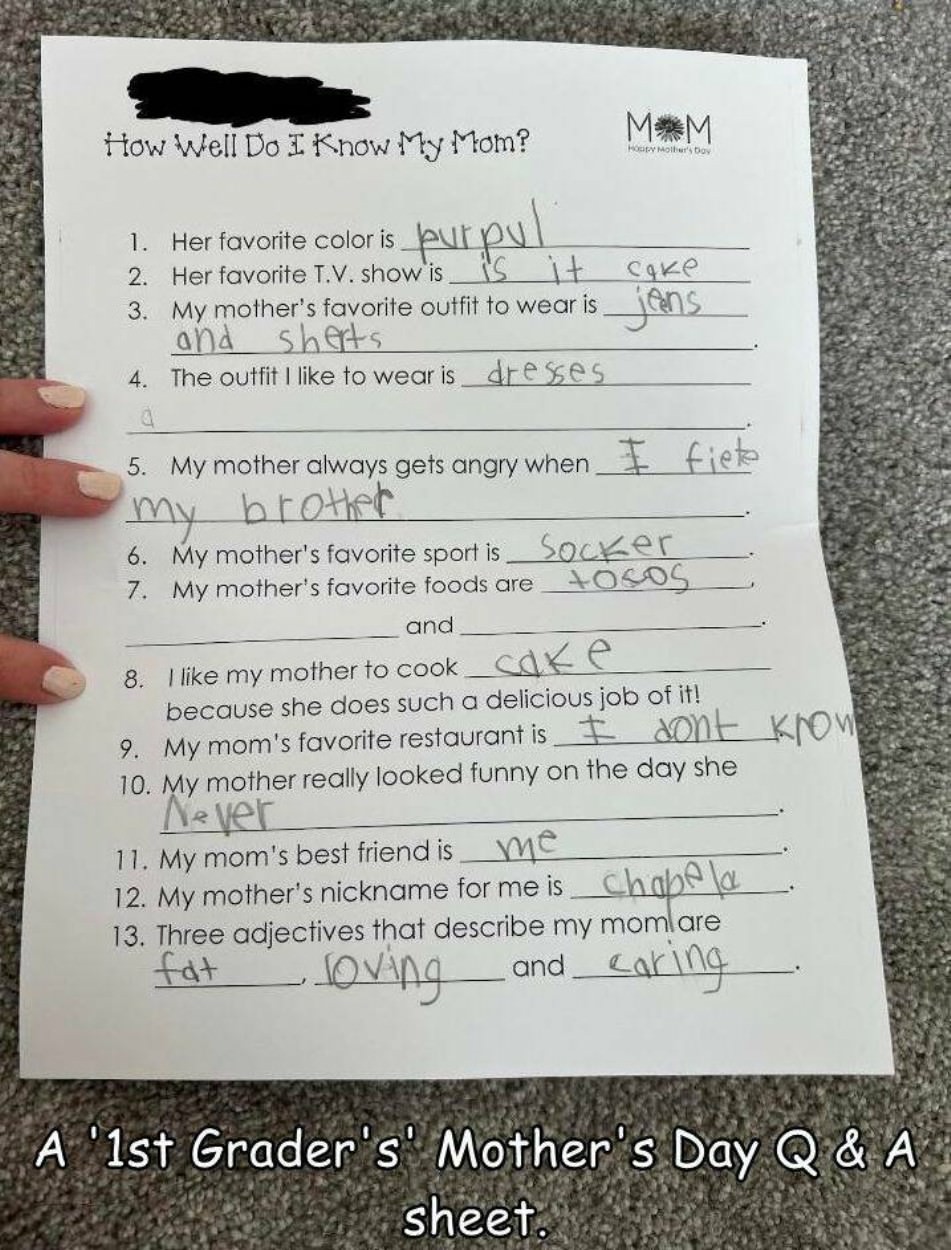 How Well Do I Know My Mom?
MOM
Happy Mother's Day
1. Her favorite color is purpul
2. Her favorite T.V. show is is it cake
3. My mother's favorite outfit to wear is jens
and sherts.
4. The outfit I like to wear is dresses
a.
5. My mother always gets angry when I fiet
my brother.
6. My mother's favorite sport is socker.
7. My mother's favorite foods are tosos,
and.
8. I like my mother to cook cake
because she does such a delicious job of it!
9. My mom's favorite restaurant is I dont know
10. My mother really looked funny on the day she
Never.
11. My mom's best friend is me.
12. My mother's nickname for me is chapela.
13. Three adjectives that describe my mom are
fat, loving and caring.
A '1st Grader's' Mother's Day Q & A
sheet.